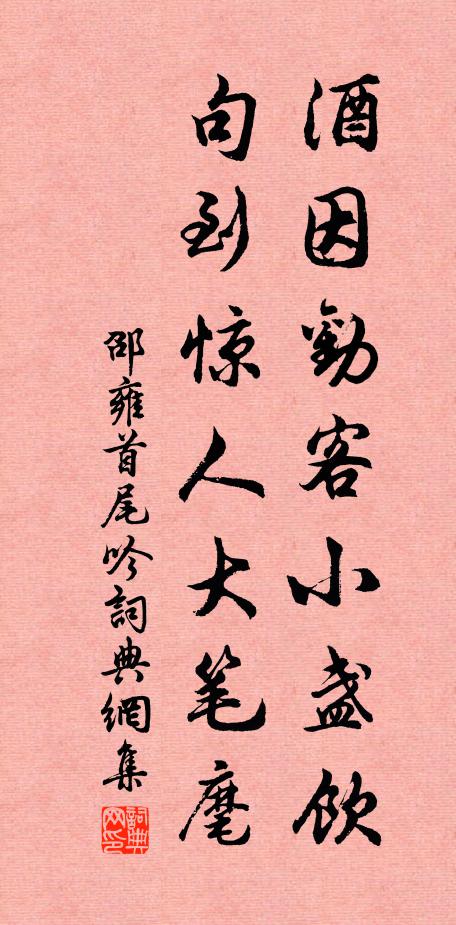 酒因勸客小盏飲
句到惊人大笔麾
邵雍首尾吟詞典網集
詞典网印